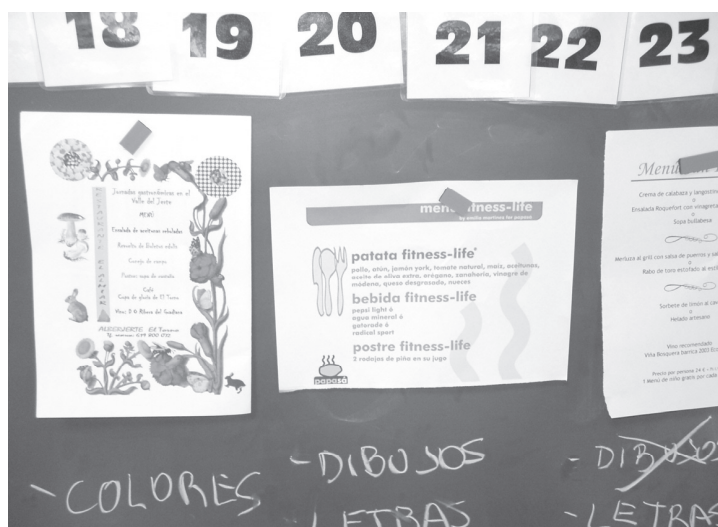 18 19 20 21 22 23
Jornadas gastronómicas en el
Valle del Jerte
MENÚ
Ensalada de aceitunas aliñadas
Café
menú fitness-life
by emilio martínez for papasá
patata fitness-life
pollo, atún, jamón york, tomate natural, maíz, aceitunas,
aceite de oliva extra, orégano, zanahoria, vinagre de
módena, queso desgrasado, nueces
bebida fitness-life
pepsi light ó
agua mineral ó
gatorade ó
radical sport
postre fitness-life
2 rodajas de piña en su jugo
papasá
Menú
Crema de calabaza y langostinos
o
Ensalada Roquefort con vinagreta
o
Sopa bullabesa
Merluza al grill con salsa de puerros y
o
Rabo de toro estofado al
Sorbete de limón al
o
Helado artesano
Vino recomendado
Viña Bosquera barrica 2003
Precio por persona 24 €
1 Menú de niño gratis por cada
- COLORES
- DIBUJOS
LETRAS
- DIBUJOS
- LETRAS